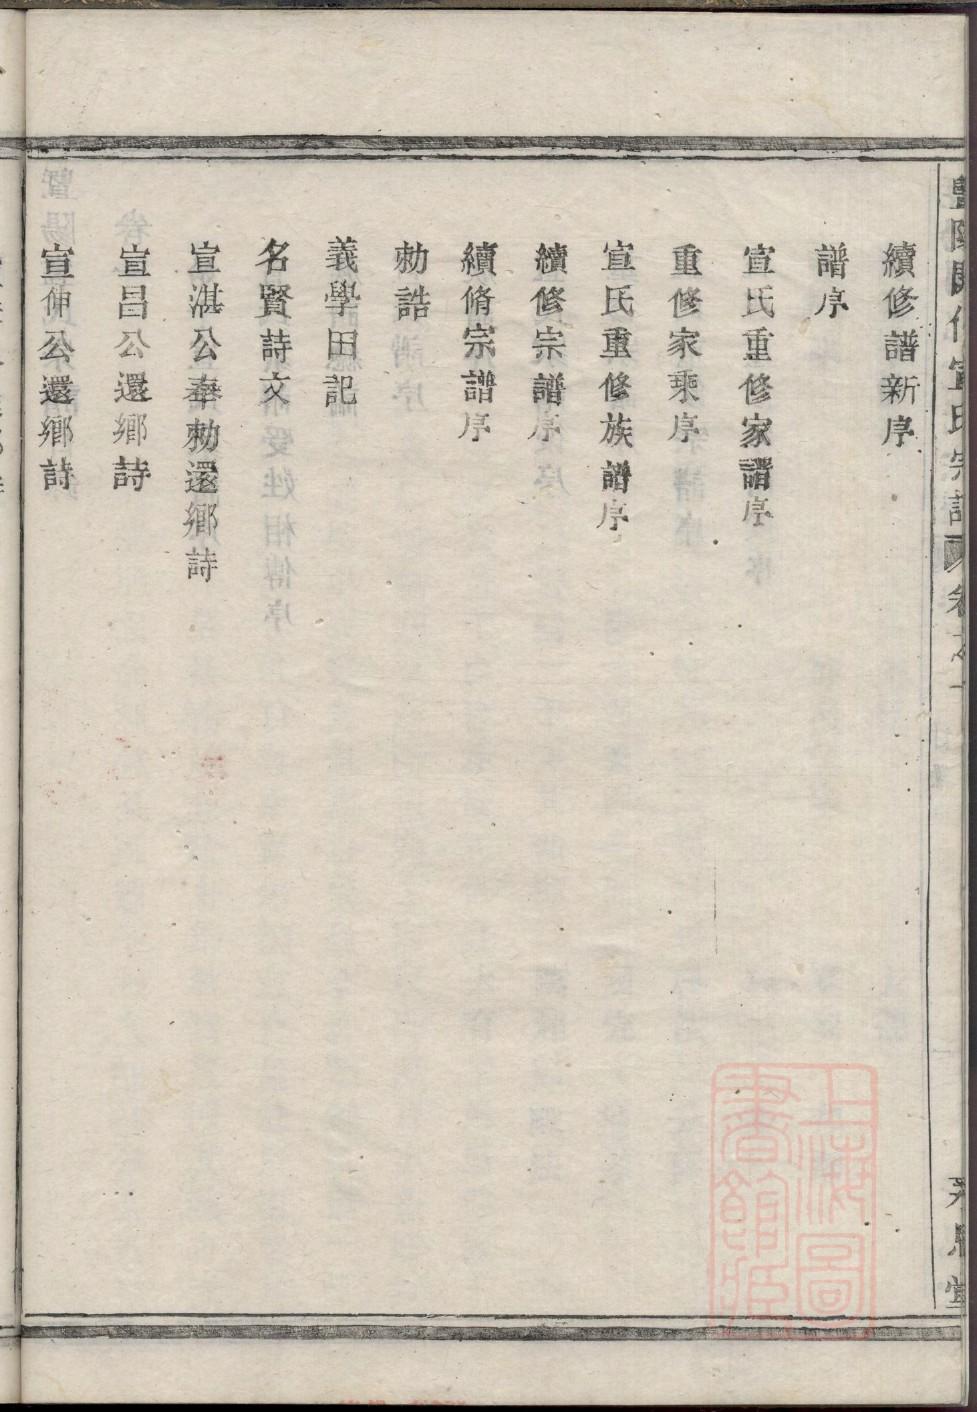 續修譜新序
譜序
宣氏重修家譜序
重修家乘序
宣氏重修族譜序
續修宗譜序
續脩宗譜序
勅誥
義學田記
名賢詩文
宣湛公奉勅還鄉詩
宣昌公還鄉詩
宣伸公還鄉詩
宣氏宗譜 卷之一
上海圖書館藏